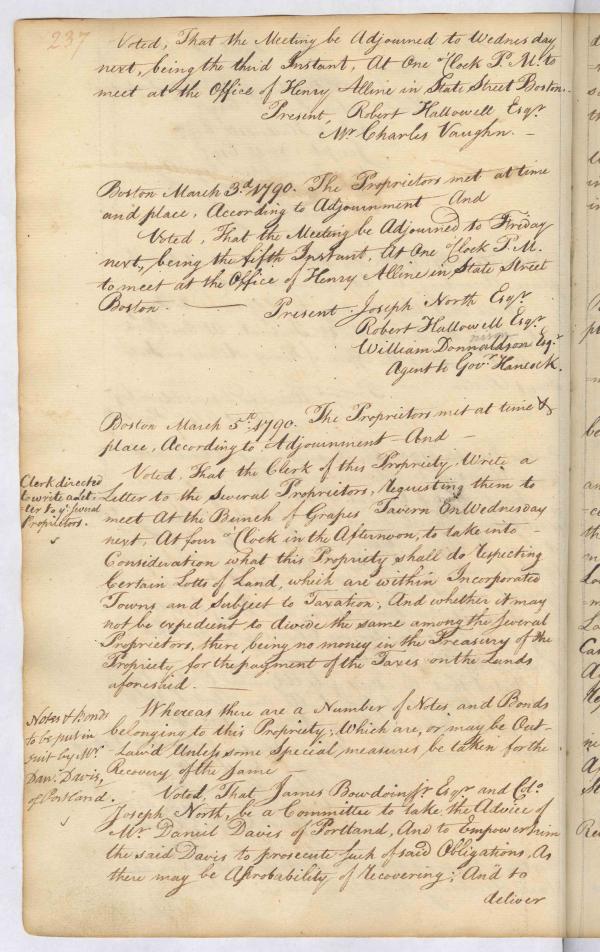 237
Voted, That the Meeting be Adjourned to Wednesday
next, being the third Instant, At One oClock P.M. to
meet at the Office of Henry Alline in State Street Boston.
Present, Robert Hallowell Esqr.
Mr Charles Vaughn. —
Boston March 3.d 1790. The Proprietors met at time
and place, According to Adjournment — And
Voted, That the Meeting be Adjourned to Friday
next, being the fifth Instant, At One oClock P.M.
to meet at the Office of Henry Alline in State Street
Boston. — Present Joseph North Esqr.
Robert Hallowell Esqr.
William Donnaldson Esqr.
Agent to Govr. Hancock.
Boston March 5th. 1790. The Proprietors met at time &
place, According to Adjournment — And —
Clerk directed
to write a Let
ter to ye. several
Proprietors.
Voted, That the Clerk of this Propriety, Write a
Letter to the several Proprietors, requesting them to
meet At the Bunch of Grapes Tavern On Wednesday
next, At four oClock in the Afternoon, to take into —
Consideration what this Propriety shall do respecting
Certain Lotts of Land, which are within Incorporated
Towns and Subject to Taxation; And whether it may
not be expedient to divide the same among the several
Proprietors, there being no money in the Treasury of the
Propriety for the payment of the Taxes on the Lands
aforesaid. —
Notes & Bonds
to be put in
suit by Mr.
Danl. Davis,
of Portland.
Whereas there are a Number of Notes and Bonds
belonging to this Propriety; Which are, or may be Out-
Law'd Unless some Special measures be taken for the
Recovery of the same —
Voted, That James Bowdoin jr Esqr. and Colo.
Joseph North, be a Committee to take the Advice of
Mr Daniel Davis of Portland, And to Empower him
the said Davis to prosecute such of said Obligations, As
there may be A probability of recovering; And to
deliver